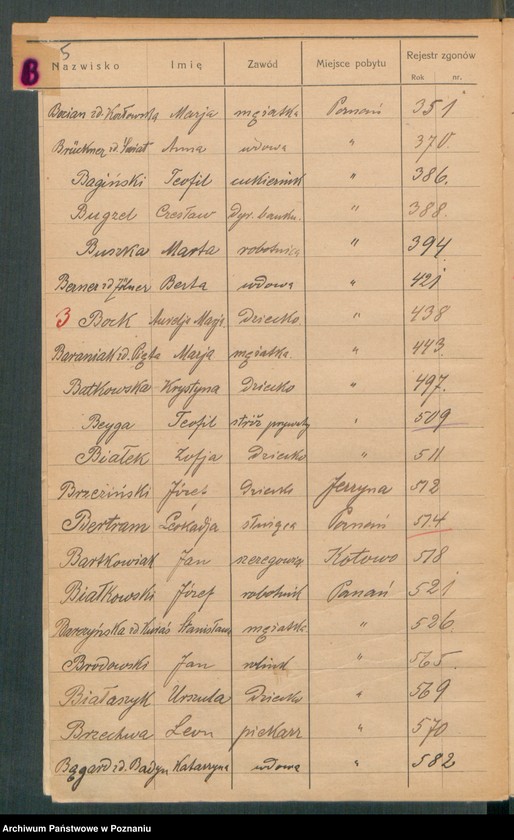 5
B
Nazwisko Imię Zawód Miejsce pobytu Rejestr zgonów
Rok nr.
Bocian zd. Kozłowska Marja mężatka Poznań 351
Brückner zd. Kwiat Anna wdowa " 370.
Bagiński Teofil cukiernik " 386.
Bugzel Czesław dyr. banku. " 388.
Buszka Marta robotnica " 394
Berner zd. Anna Berta wdowa " 421
3 Bock Aurelja Marja Dziecko. " 438
Baraniak zd. Pięta Marja mężatka. " 443.
Batkowska Krystyna Dziecko " 497.
Beyga Teofil stróż prywatny " 509
Białek Zofja Dziecko " 511
Brzeziński Józef Dziecko Jerzyna 512
Bertram Leokadja służąca Poznań 514
Bartkowiak Jan szeregowy Kotowo 518
Białkowski Józef robotnik Poznań 521
Barczyńska zd. Kubiś Stanisława mężatka " 526.
Brodowski Jan rolnik " 565.
Białaszyk Urszula Dziecko " 569
Brzechwa Leon piekarz " 570
Bągard zd. Badyn Katarzyna wdowa " 582
Archiwum Państwowe w Poznaniu